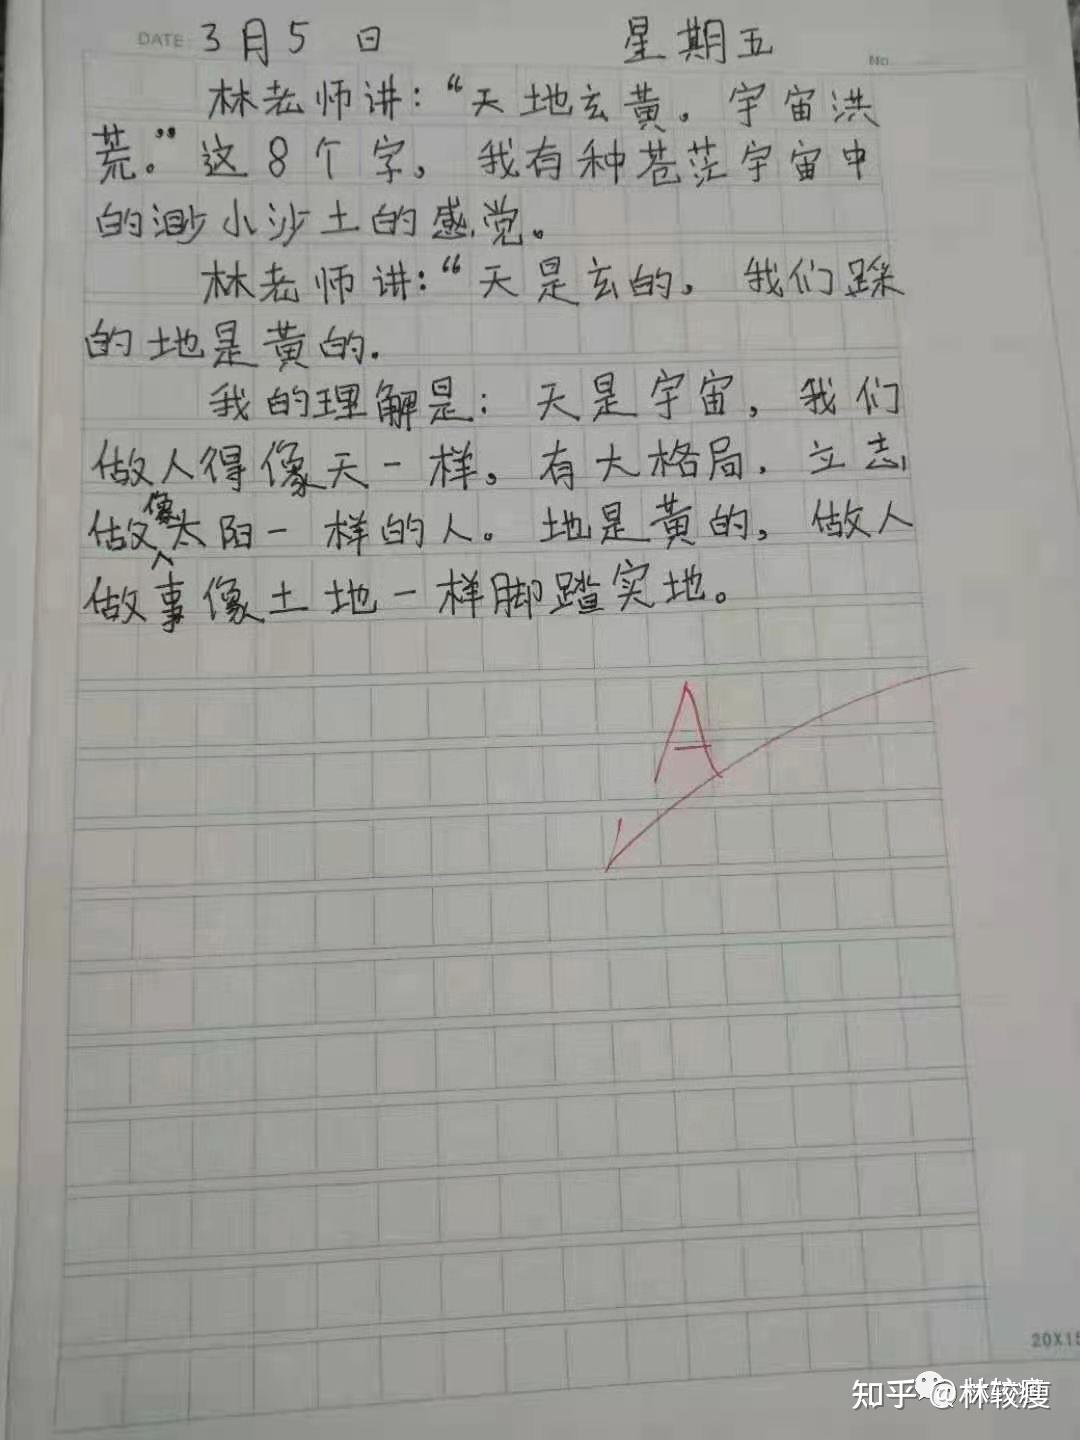 DATE 3月5日 星期五 No.
林老师讲：“天地玄黄。宇宙洪
荒。”这8个字，我有种苍茫宇宙中
的渺小沙土的感觉。
林老师讲：“天是玄的，我们踩
的地是黄的.
我的理解是：天是宇宙，我们
做人得像天一样。有大格局，立志
做像太阳一样的人。地是黄的，做人
做事像土地一样脚踏实地。
A
20X15
知乎 @林较瘦